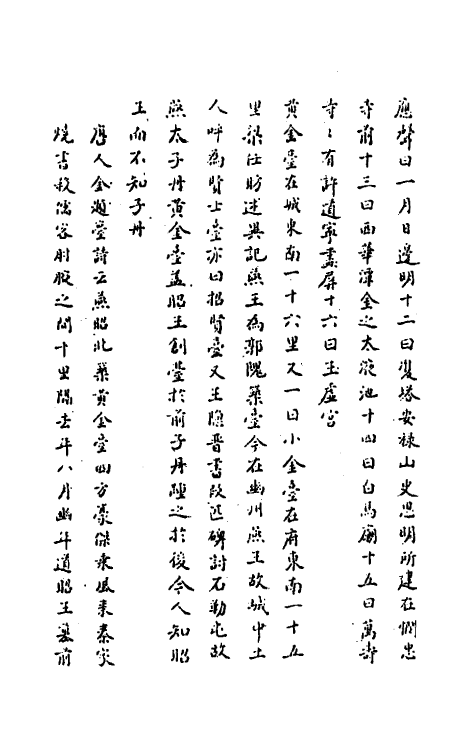 應聲曰一月日邊明十二曰雙塔安祿山史思明所建在憫忠
寺前十三曰西華潭金之太液池十四曰白馬廟十五曰萬壽
寺〻有許道寧畫屏十六曰玉虛宮
黃金臺在城東南一十六里又一曰小金臺在府東南一十五
里梁任昉述異記燕王為郭隗築臺今在幽州燕王故城中土
人呼為賢士臺亦曰招賢臺又王隱晉書段匹磾討石勒屯故
燕太子丹黃金臺蓋昭王創臺於前子丹踵之於後今人知昭
王而不知子丹
唐人金臺詩云燕昭北築黃金臺四方豪傑乘風來秦家
燒書殺儒客肘腋之間千里隔去年八月幽并道昭王墓前